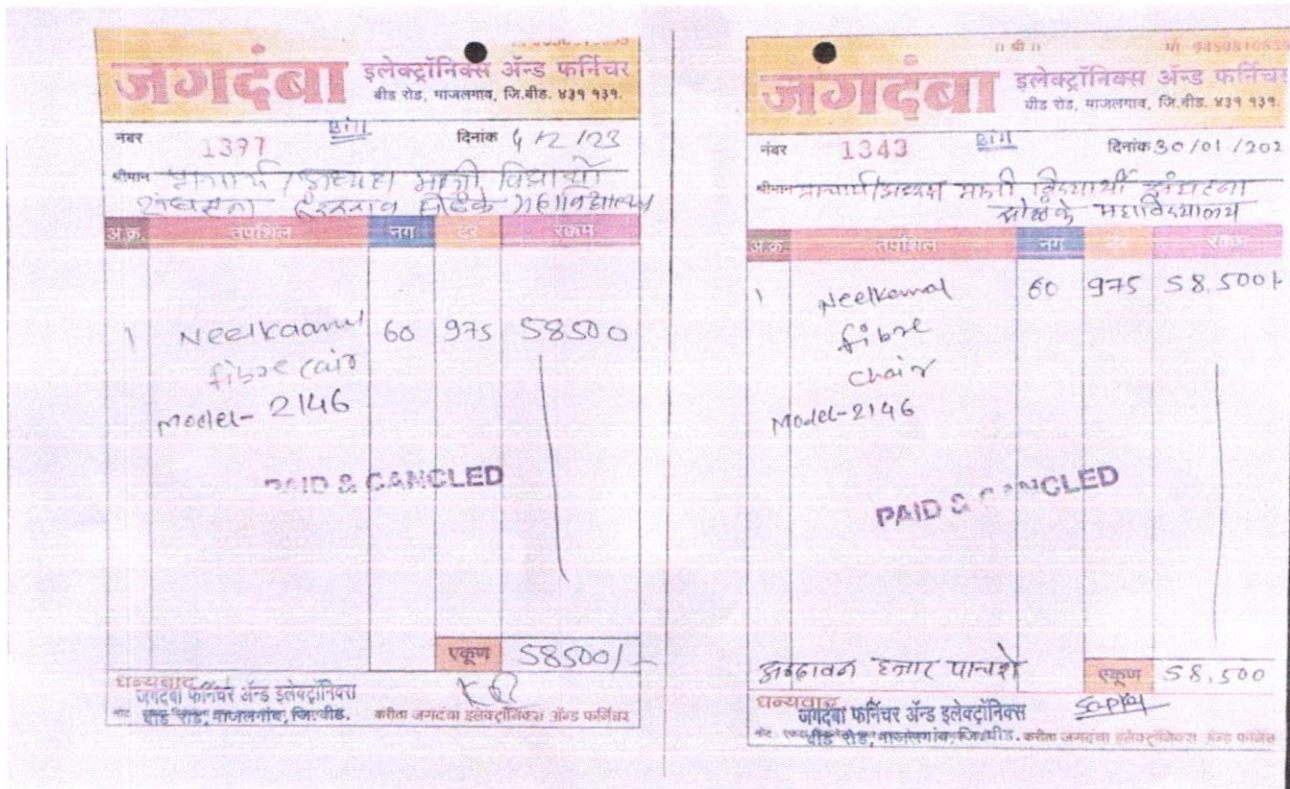 जगदंबा इलेक्ट्रॉनिक्स अ‍ॅन्ड फर्निचर
बीड रोड, माजलगाव, जि.बीड. ४३१ १३१.
Bill
नंबर 1377 दिनांक 4/2/23
श्रीमान प्राचार्य / अध्यक्ष माजी विद्यार्थी
महाविद्यालय
अ.क्र. तपशिल नग दर रकम
1 Neelkaaml 60 975 58500
fibre cair
model- 2146
PAID & CANCLED
एकूण 58500/-
धन्यवाद
जगदंबा फर्निचर अ‍ॅन्ड इलेक्ट्रॉनिक्स
बीड रोड, माजलगांव, जि.बीड.
करीता जगदंबा इलेक्ट्रॉनिक्स अ‍ॅन्ड फर्निचर
॥ श्री ॥
जगदंबा इलेक्ट्रॉनिक्स अ‍ॅन्ड फर्निचर
बीड रोड, माजलगाव, जि.बीड. ४३१ १३१.
Bill
नंबर 1343 दिनांक 30/01/202
श्रीमान प्राचार्य/अध्यक्ष माजी विद्यार्थी संघटना
सोळंके महाविद्यालय
अ.क्र. तपशिल नग दर रकम
1 Neelkamal 60 975 58,500/-
fibre
chair
Model-2146
PAID & CANCLED
अठ्ठावन हजार पाचशे एकूण 58,500
धन्यवाद
जगदंबा फर्निचर अ‍ॅन्ड इलेक्ट्रॉनिक्स
बीड रोड, माजलगांव, जि.बीड.
करीता जगदंबा इलेक्ट्रॉनिक्स अ‍ॅन्ड फर्निचर